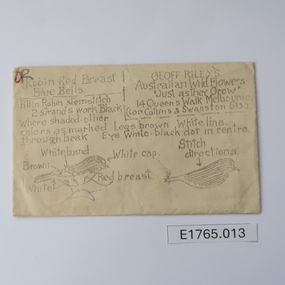 DR
Robin Red Breast
Blue Bells
Robin Robin stemstitch
2 strands work Black
where shaded other
colors as marked Legs brown White line
through break Eye White-black dot in centre
GEOFF RILEY'S
Australian Wild Flowers
"Just as they Grow"
14 Queens Walk Melbourne
(Cor Collins & Swanston Sts)
White band
White cap.
Brown
White
Red breast
Stitch
directions.
E1765.013